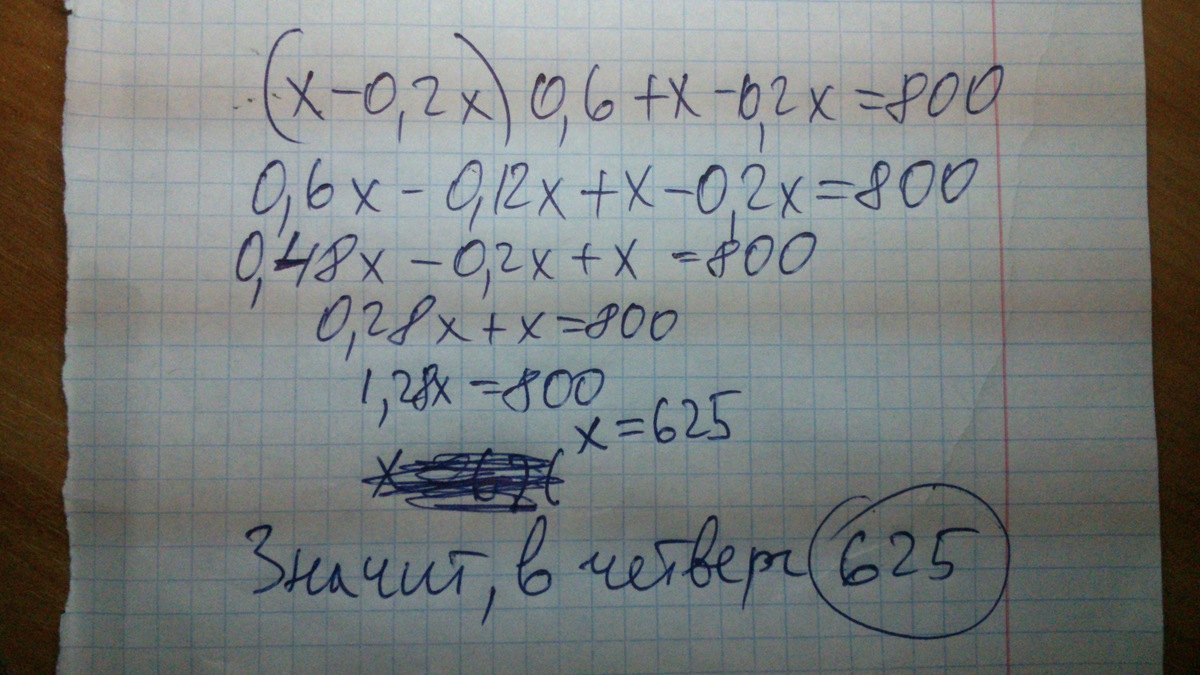 (x-0,2x)0,6+x-0,2x=800
0,6x-0,12x+x-0,2x=800
0,48x-0,2x+x=800
0,28x+x=800
1,28x=800
x=625
Значит, в четверг 625